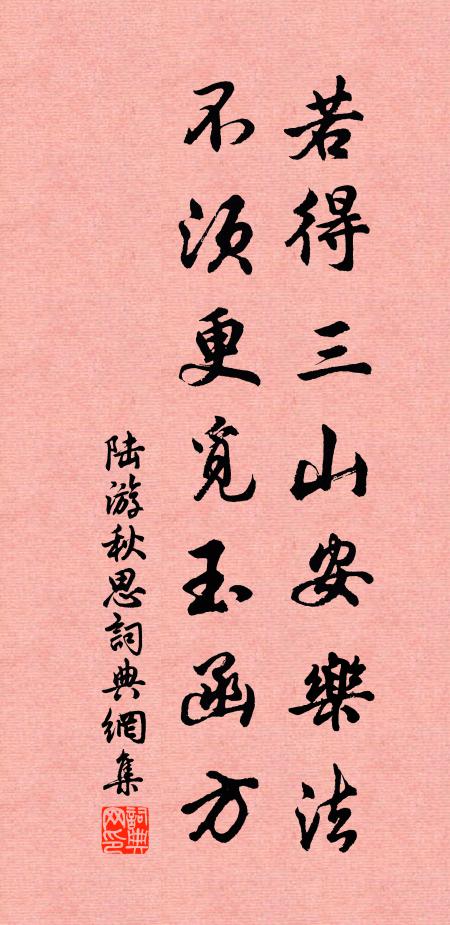 若得三山安樂法
不須更覓玉函方
陆游秋思詞典網集
詞典网印